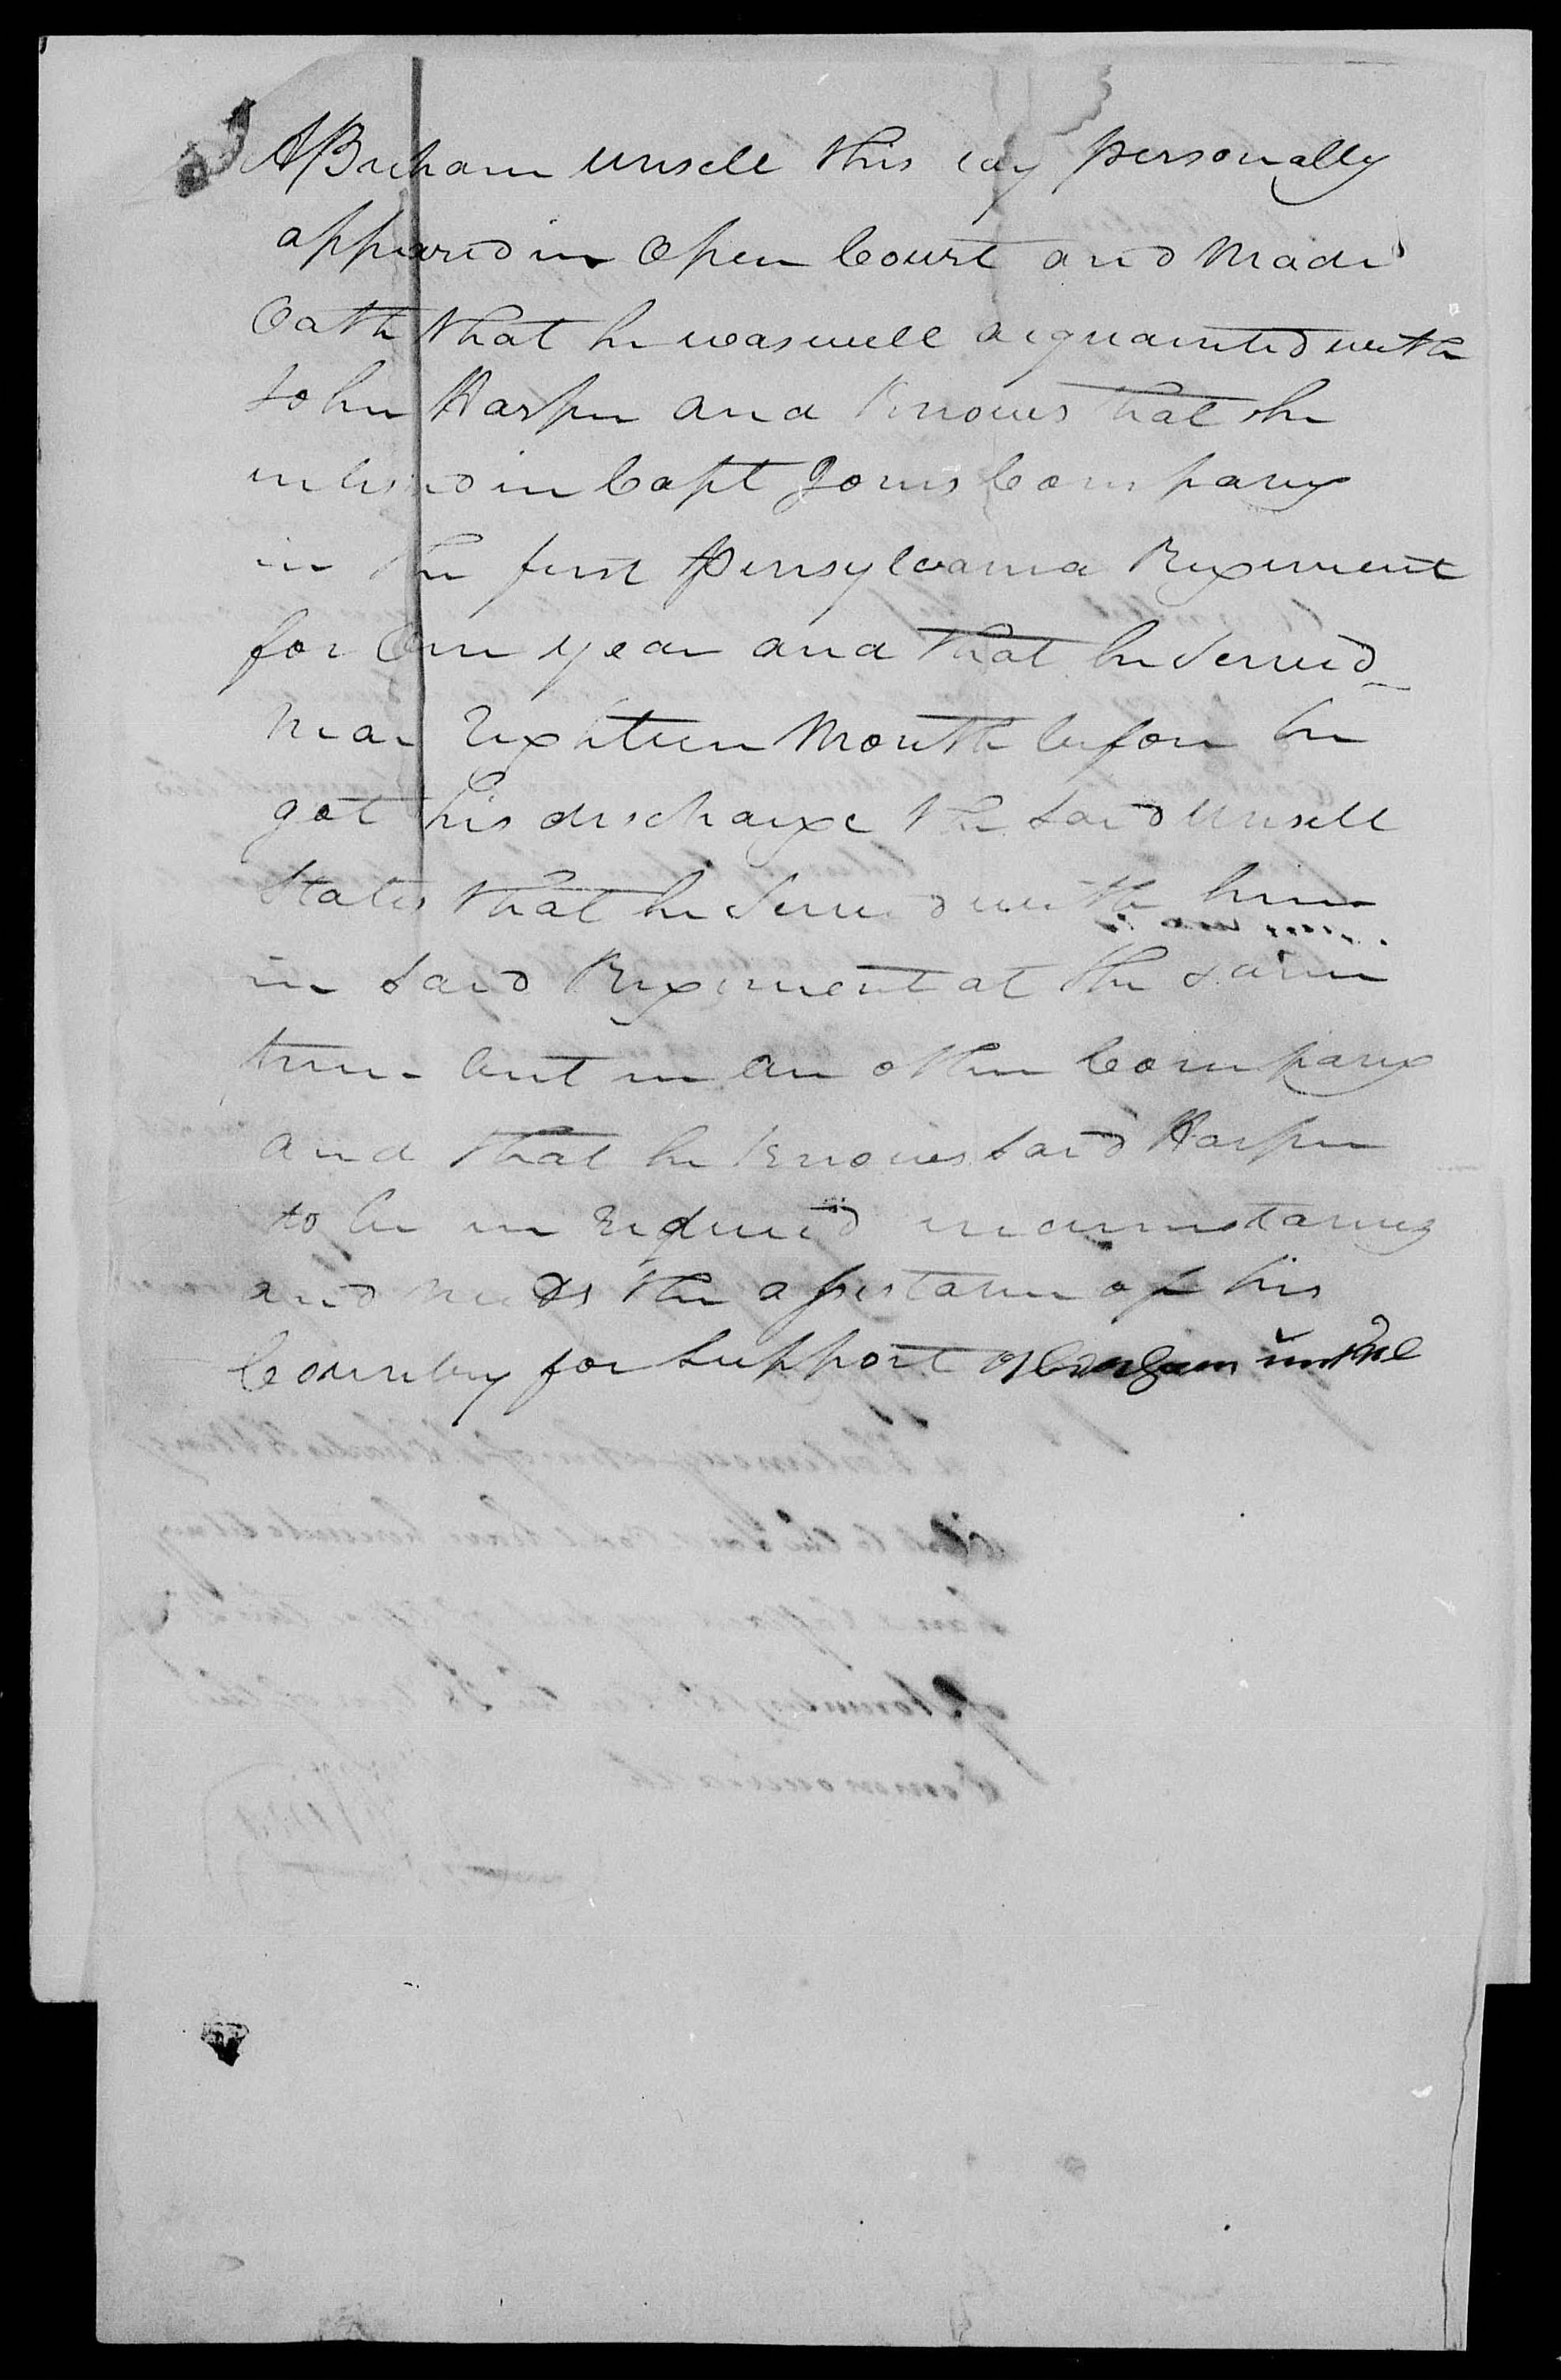 ABraham Unsell this day personally
appeared in Open Court and Made
Oath that he was well acquainted with
John Harper and Knows that he
inlisted in Capt Jones Company
in the first Pensylvania Regiment
for One year and that he Served
near Eighteen Month before he
got his discharge the Said Unsell
States that he Served with him
in Said Regiment at the Same
time but in an other Company
and that he Knows Said Harper
to be in reduced circumstances
and needs the assistance of his
Country for Support Abraham Unsel